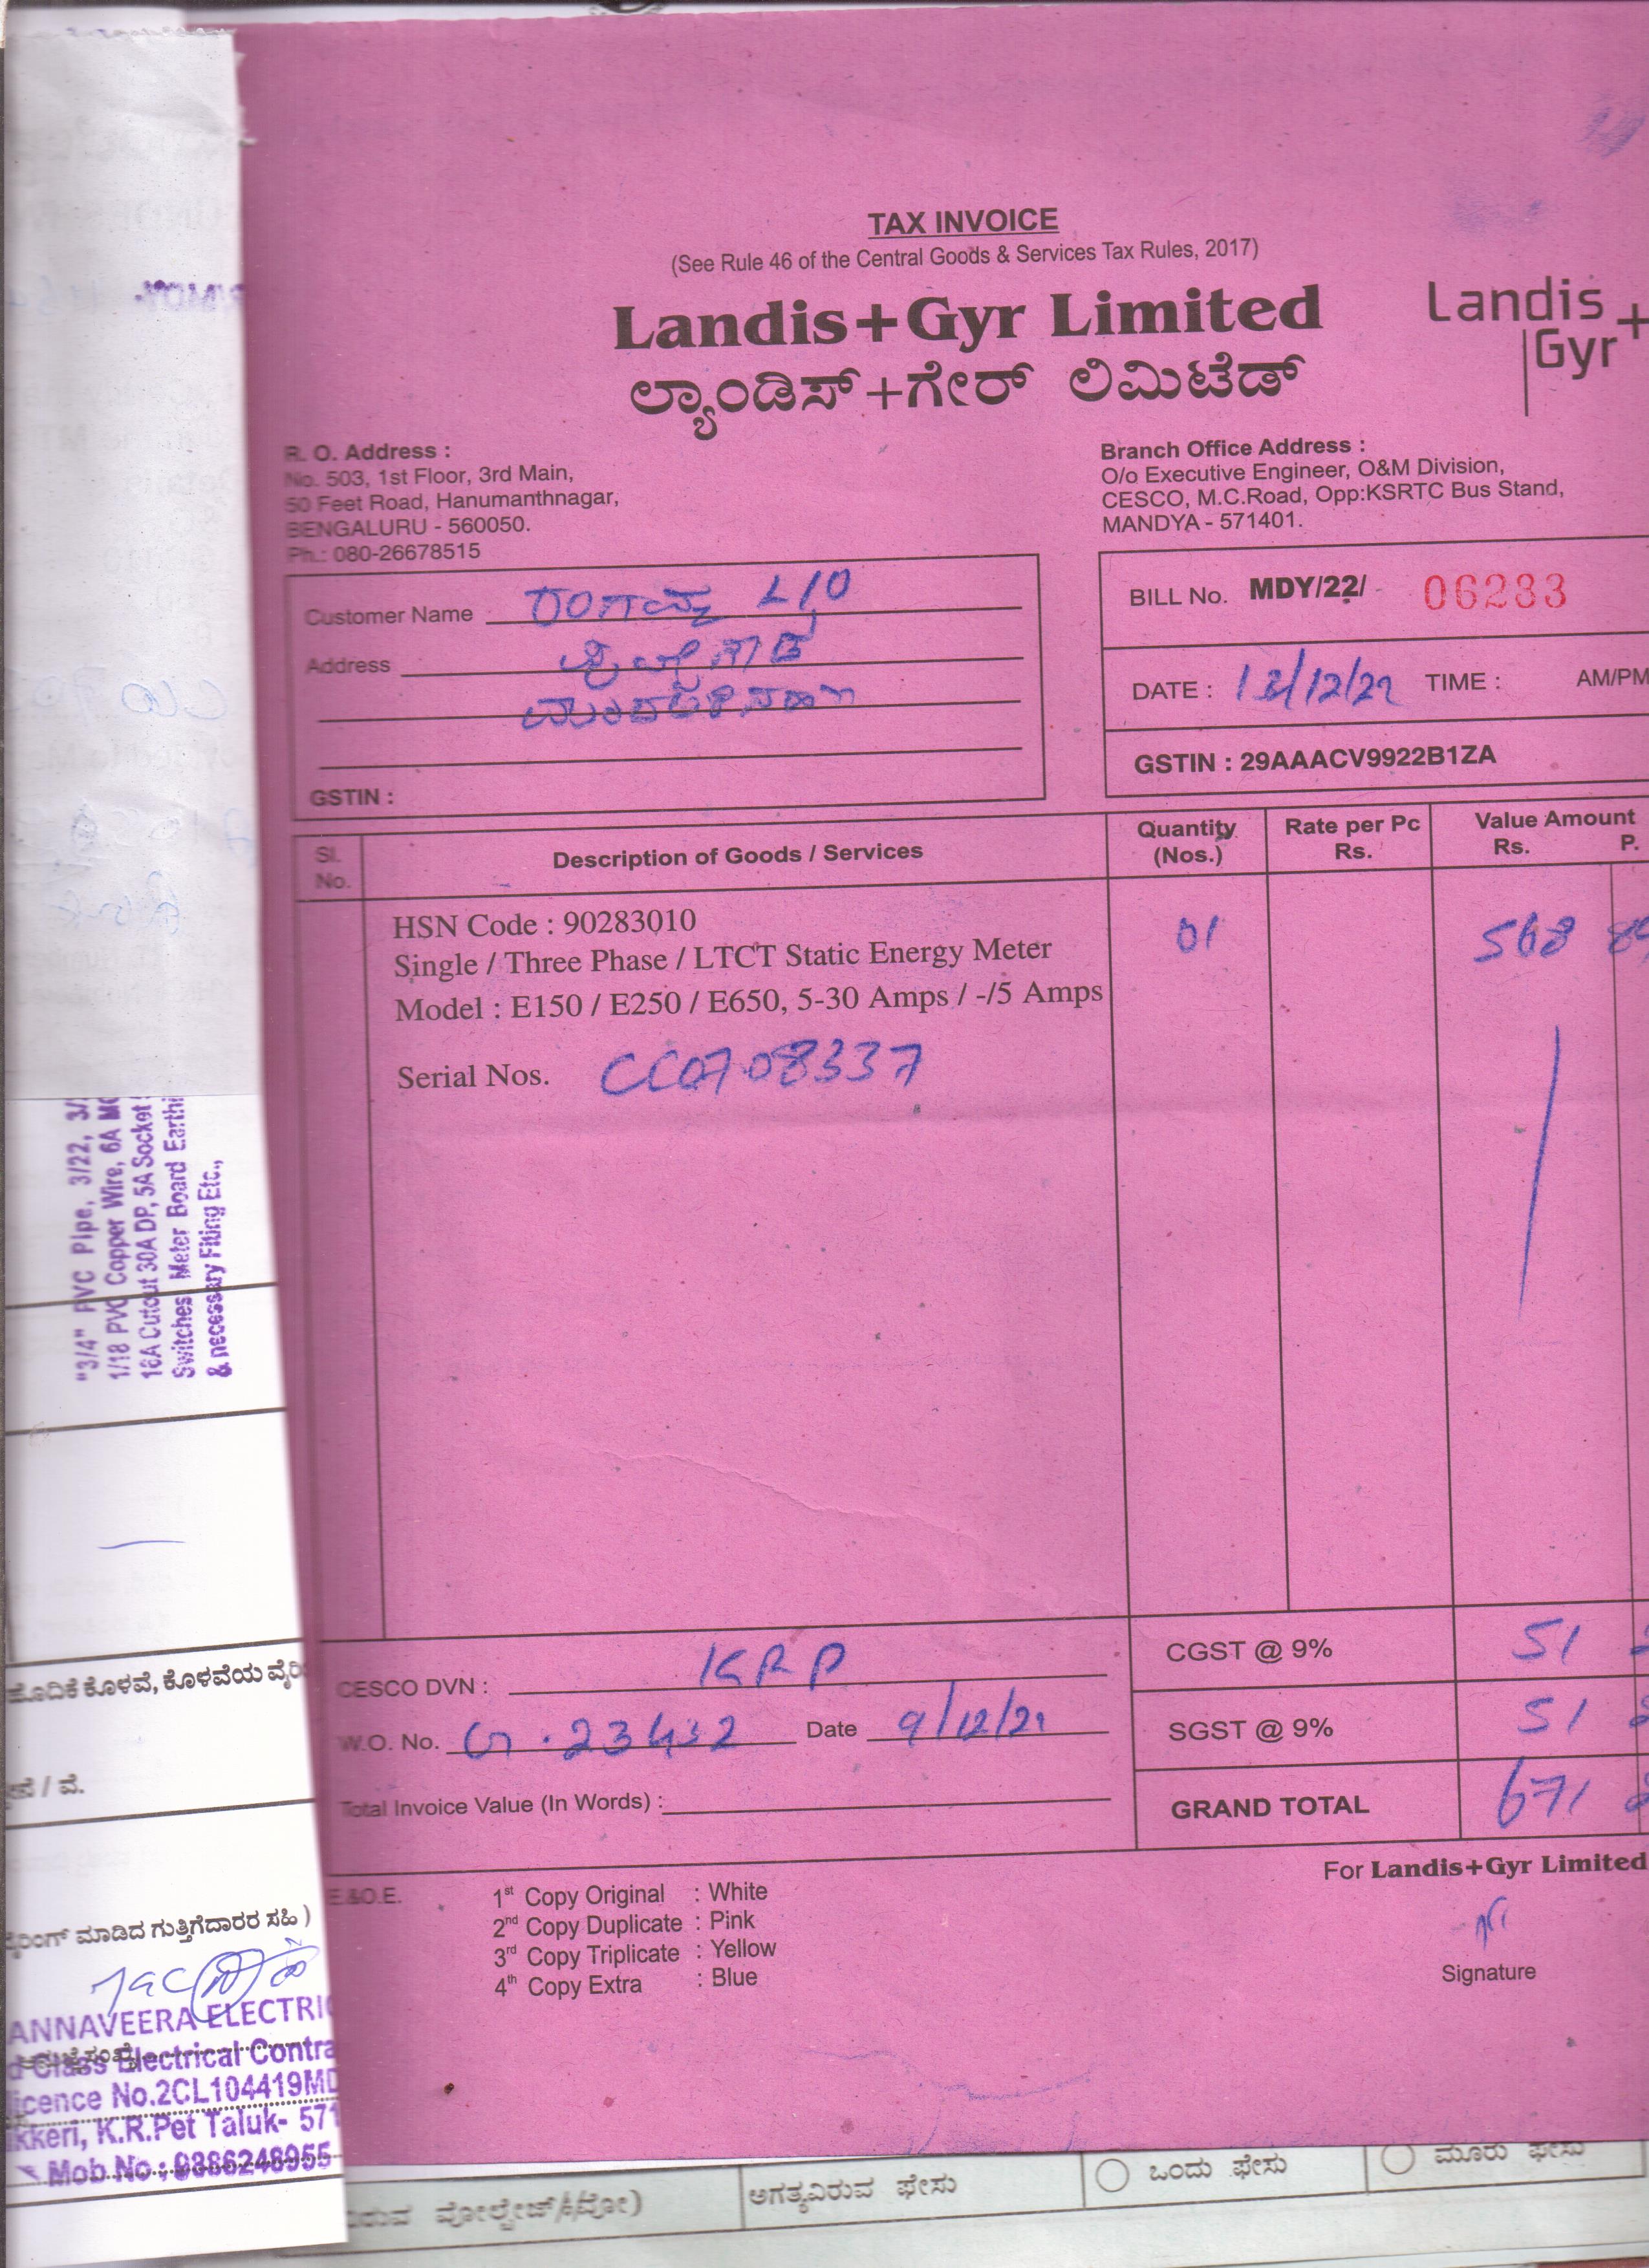 TAX INVOICE
(See Rule 46 of the Central Goods & Services Tax Rules, 2017)
Landis+Gyr Limited
ಲ್ಯಾಂಡಿಸ್+ಗೇರ್ ಲಿಮಿಟೆಡ್
Landis
Gyr+
R. O. Address :
No. 503, 1st Floor, 3rd Main,
50 Feet Road, Hanumanthnagar,
BENGALURU - 560050.
Ph.: 080-26678515
Branch Office Address :
O/o Executive Engineer, O&M Division,
CESCO, M.C.Road, Opp:KSRTC Bus Stand,
MANDYA - 571401.
Customer Name L/O
Address
GSTIN :
BILL No. MDY/22/ 06233
DATE : 13/12/22 TIME : AM/PM
GSTIN : 29AAACV9922B1ZA
Sl. No. Description of Goods / Services Quantity (Nos.) Rate per Pc Rs. Value Amount Rs. P.
HSN Code : 90283010 01 568
Single / Three Phase / LTCT Static Energy Meter
Model : E150 / E250 / E650, 5-30 Amps / -/5 Amps
Serial Nos. CC0708337
CESCO DVN : KRP
W.O. No. 23432 Date 9/12/22
Total Invoice Value (In Words) :
CGST @ 9% 51
SGST @ 9% 51
GRAND TOTAL 671
For Landis+Gyr Limited
Signature
E.&O.E.
1st Copy Original : White
2nd Copy Duplicate : Pink
3rd Copy Triplicate : Yellow
4th Copy Extra : Blue
"3/4" PVC Pipe, 3/22, 3/
1/18 PVC Copper Wire, 6A
16A Cutout 30A DP, 5A Socket
Switches Meter Board Earthi
& necessary Fiting Etc.,
ಕೊಳವೆ, ಕೊಳವೆಯ
/ ವೆ.
ಮಾಡಿದ ಗುತ್ತಿಗೆದಾರರ ಸಹಿ )
ANNAVEERA ELECTRIC
Class Electrical Contra
icence No.2CL104419MD
ikkeri, K.R.Pet Taluk- 571
Mob No : 9886248955
ಅಗತ್ಯವಿರುವ ಫೇಸು ಒಂದು ಫೇಸು ಮೂರು ಫೇಸು